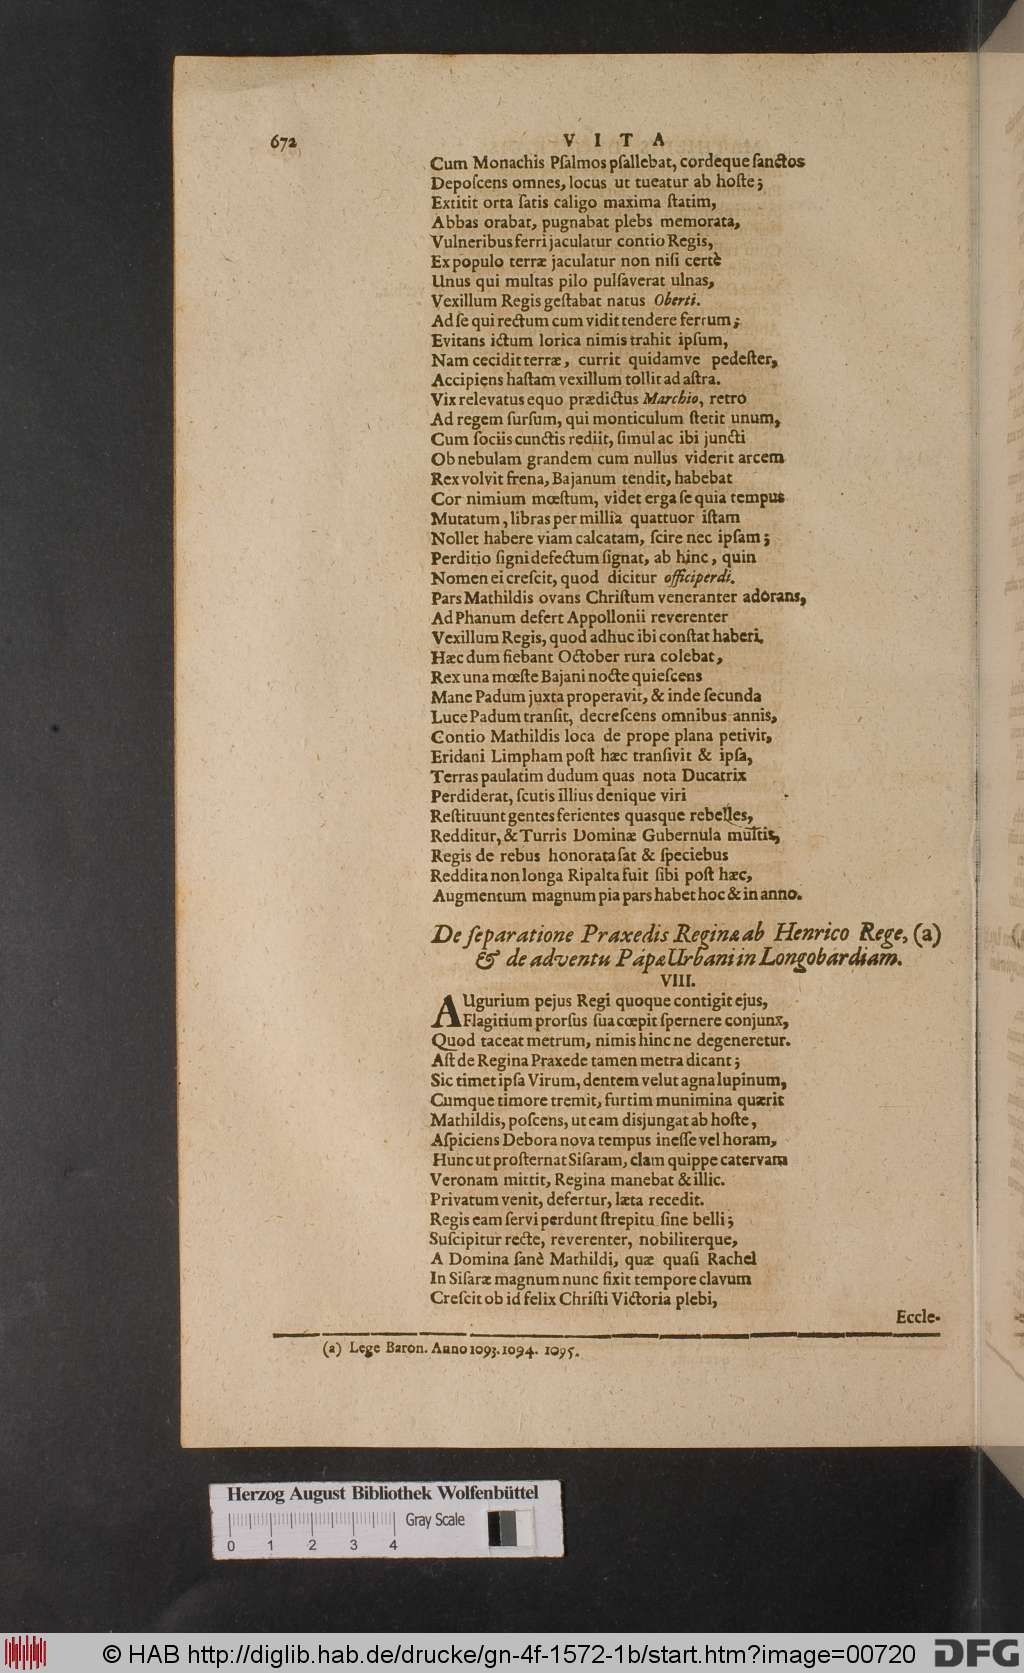 672 VITA
Cum Monachis Pſalmos pſallebat, cordeque ſanctos
Depoſcens omnes, locus ut tueatur ab hoſte;
Extitit orta ſatis caligo maxima ſtatim,
Abbas orabat, pugnabat plebs memorata,
Vulneribus ferri jaculatur contio Regis,
Ex populo terræ jaculatur non niſi certè
Unus qui multas pilo pulſaverat ulnas,
Vexillum Regis geſtabat natus Oberti.
Ad ſe qui rectum cum vidit tendere ferrum;
Evitans ictum lorica nimis trahit ipſum,
Nam cecidit terræ, currit quidamve pedeſter,
Accipiens haſtam vexillum tollit ad aſtra.
Vix relevatus equo prædictus Marchio, retro
Ad regem ſurſum, qui monticulum ſtetit unum,
Cum ſociis cunctis rediit, ſimul ac ibi juncti
Ob nebulam grandem cum nullus viderit arcem
Rex volvit frena, Bajanum tendit, habebat
Cor nimium mœſtum, videt erga ſe quia tempus
Mutatum, libras per millia quattuor iſtam
Nollet habere viam calcatam, ſcire nec ipſam;
Perditio ſigni defectum ſignat, ab hinc, quin
Nomen ei creſcit, quod dicitur officiperdi.
Pars Mathildis ovans Chriſtum veneranter adorans,
Ad Phanum defert Appollonii reverenter
Vexillum Regis, quod adhuc ibi conſtat haberi.
Hæc dum fiebant October rura colebat,
Rex una mœſte Bajani nocte quieſcens
Mane Padum juxta properavit, & inde ſecunda
Luce Padum tranſit, decreſcens omnibus annis,
Contio Mathildis loca de prope plana petivit,
Eridani Limpham poſt hæc tranſivit & ipſa,
Terras paulatim dudum quas nota Ducatrix
Perdiderat, ſcutis illius denique viri
Reſtituunt gentes ferientes quasque rebelles,
Redditur, & Turris Dominæ Gubernula multis,
Regis de rebus honorata ſat & ſpeciebus
Reddita non longa Ripalta fuit ſibi poſt hæc,
Augmentum magnum pia pars habet hoc & in anno.
De ſeparatione Praxedis Reginæ ab Henrico Rege, (a)
& de adventu Papæ Urbani in Longobardiam.
VIII.
AUgurium pejus Regi quoque contigit ejus,
Flagitium prorſus ſua cœpit ſpernere conjunx,
Quod taceat metrum, nimis hinc ne degeneretur.
Aſt de Regina Praxede tamen metra dicant;
Sic timet ipſa Virum, dentem velut agna lupinum,
Cumque timore tremit, furtim munimina quærit
Mathildis, poſcens, ut eam disjungat ab hoſte,
Aſpiciens Debora nova tempus ineſſe vel horam,
Hunc ut proſternat Siſaram, clam quippe catervam
Veronam mittit, Regina manebat & illic.
Privatum venit, defertur, læta recedit.
Regis eam ſervi perdunt ſtrepitu ſine belli;
Suſcipitur recte, reverenter, nobiliterque,
A Domina ſanè Mathildi, quæ quaſi Rachel
In Siſaræ magnum nunc fixit tempore clavum
Creſcit ob id felix Chriſti Victoria plebi,
Eccle-
(a) Lege Baron. Anno 1093. 1094. 1095.
Herzog August Bibliothek Wolfenbüttel
Gray Scale
0 1 2 3 4
© HAB http://diglib.hab.de/drucke/gn-4f-1572-1b/start.htm?image=00720 DFG